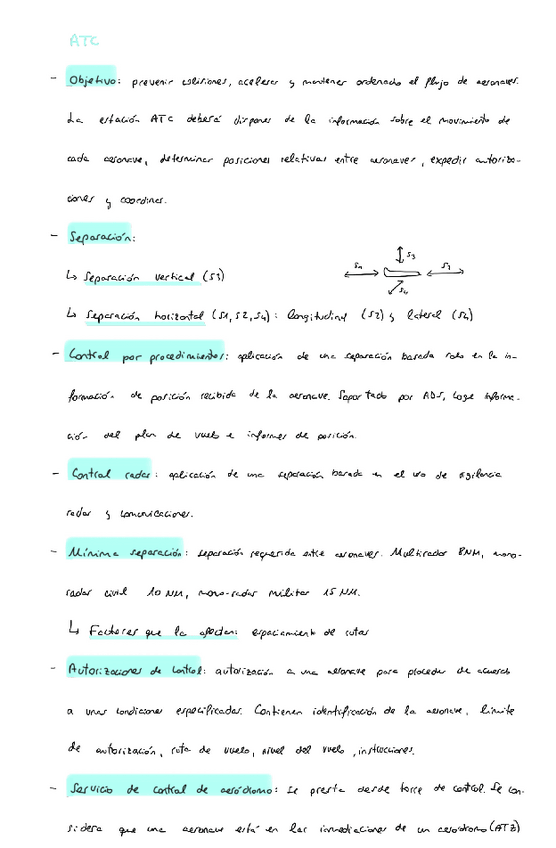 ATC
- Objetivo: prevenir colisiones, acelerar y mantener ordenado el flujo de aeronaves.
La estación ATC deberá disponer de la información sobre el movimiento de
cada aeronave, determinar posiciones relativas entre aeronaves, expedir autoriza-
ciones y coordinar.
- Separación:
↳ Separación vertical (S3)
S3
S1
S2
S4
↳ Separación horizontal (S1, S2, S4): longitudinal (S2) y lateral (S4)
- Control por procedimientos: aplicación de una separación basada solo en la in-
formación de posición recibida de la aeronave. Soportado por ADS, informa-
ción del plan de vuelo e informes de posición.
- Control radar: aplicación de una separación basada en el uso de vigilancia
radar y comunicaciones.
- Mínima separación: separación requerida entre aeronaves. Multiradar 8NM, mono-
radar civil 10 NM, mono-radar militar 15 NM.
↳ Factores que la afectan: espaciamiento de rutas
- Autorizaciones de control: autorización a una aeronave para proceder de acuerdo
a unas condiciones especificadas. Contienen identificación de la aeronave, límite
de autorización, ruta de vuelo, nivel del vuelo, instrucciones.
- Servicio de control de aeródromo: se presta desde torre de control. Se con-
sidera que una aeronave está en las inmediaciones de un aeródromo (ATZ)